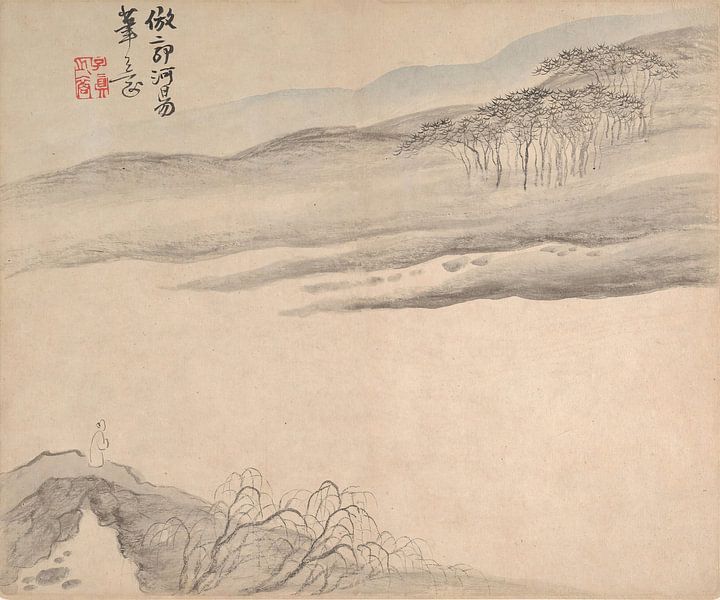 倣郭河昜
筆意